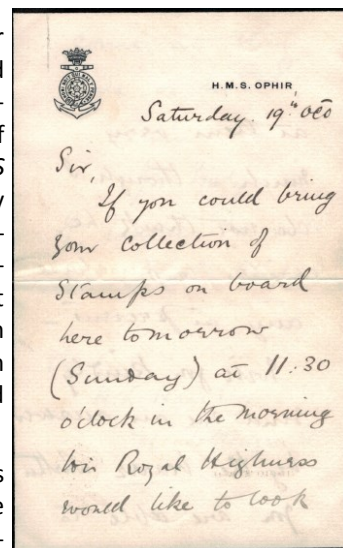 H.M.S. OPHIR
Saturday. 19th Oct
Sir,
If you could bring
your collection of
Stamps on board
here tomorrow
(Sunday) at 11.30
o'clock in the morning
His Royal Highness
would like to look